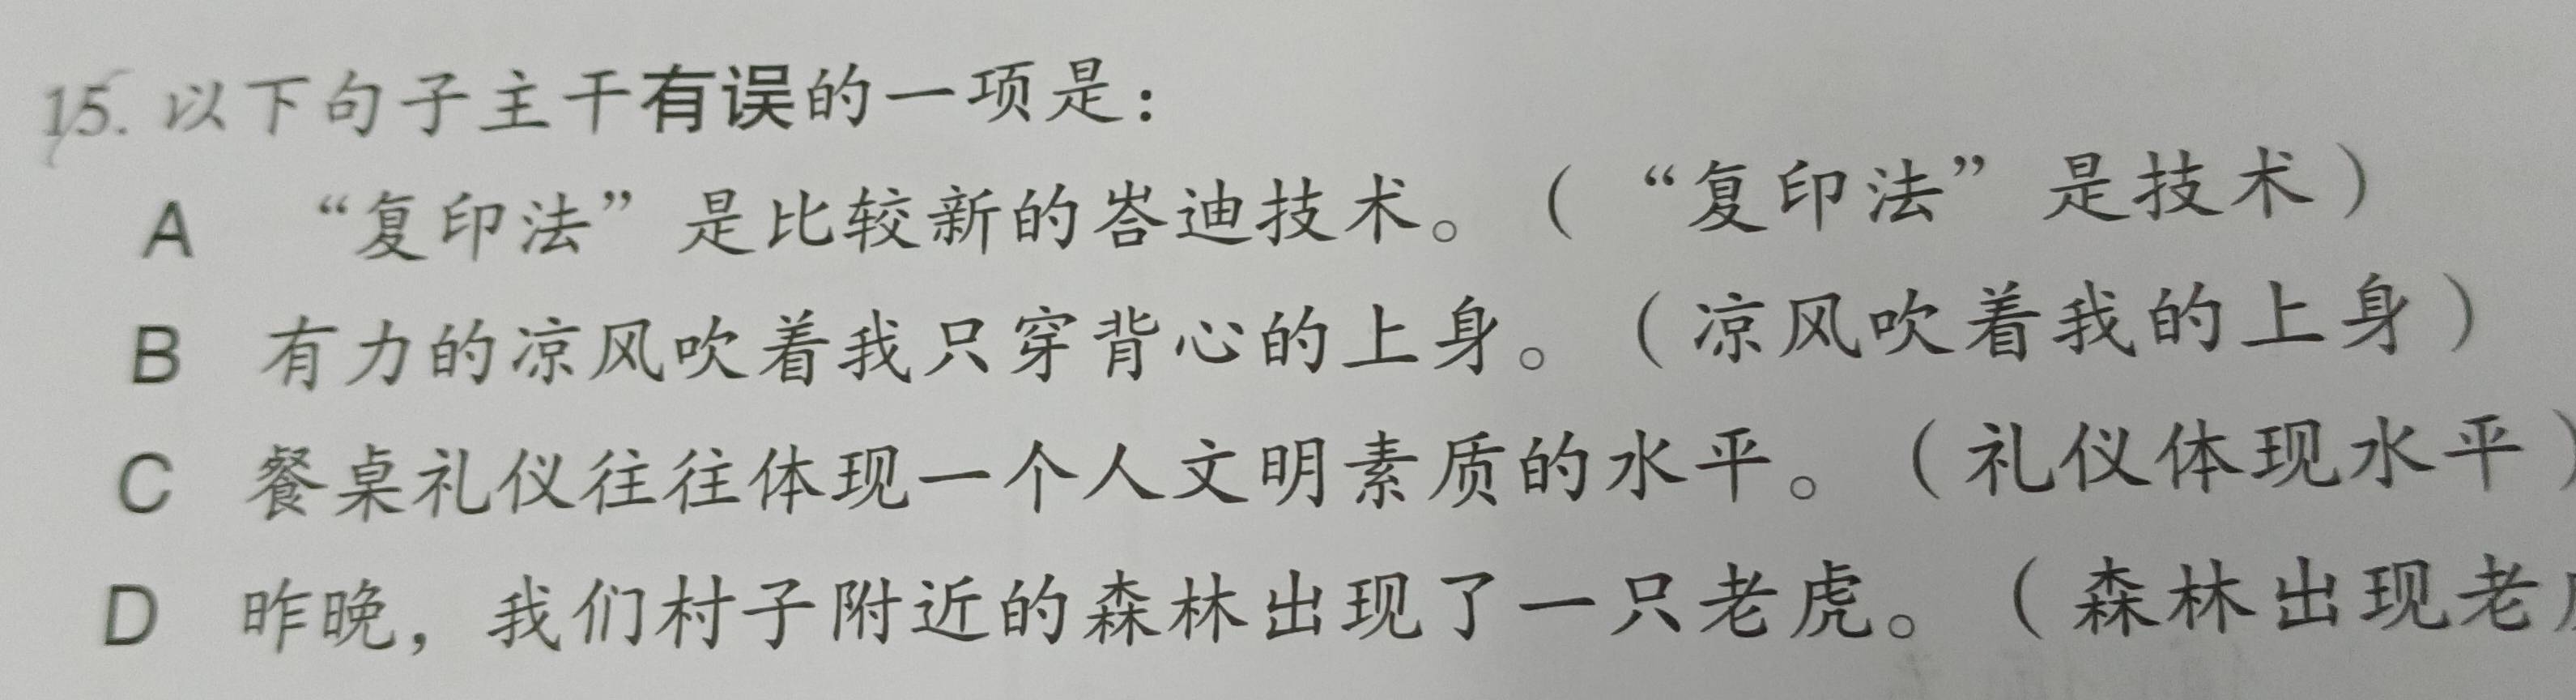 15. 以下句子主干有误的一项是：
A “复印法”是比较新的峇迪技术。（“复印法”是技术）
B 有力的凉风吹着我只穿背心的上身。（凉风吹着我的上身）
C 餐桌礼仪往往体现一个人文明素质的水平。（礼仪体现水平）
D 昨晚，我们村子附近的森林出现了一只老虎。（森林出现老